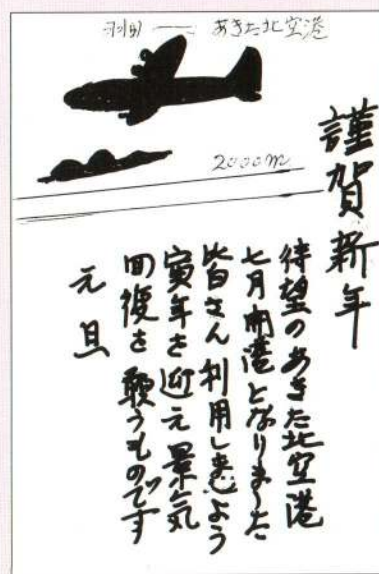 羽田 ― あきた北空港
2000m
謹賀新年
待望のあきた北空港
七月開港となりました
皆さん利用し患よう
寅年を迎え景気
回復を願うものです
元旦